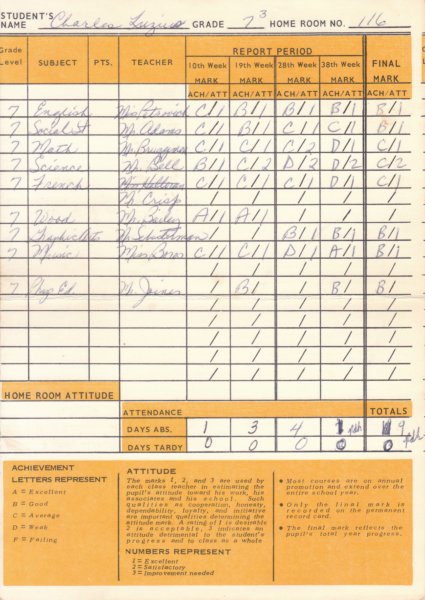 STUDENT'S
NAME Charles Luzius GRADE 7³ HOME ROOM NO. 116
Grade Level SUBJECT PTS. TEACHER REPORT PERIOD FINAL
10th Week 19th Week 28th Week 38th Week
MARK MARK MARK MARK MARK
ACH/ATT ACH/ATT ACH/ATT ACH/ATT ACH/ATT
7 English C/1 B/1 B/1 B/1 B/1
7 Mr. Adams C/1 B/1 C/1 C/1 B/1
7 Math C/1 C/1 C/2 D/1 C/1
7 Science Mr. Bell B/1 C/2 D/2 D/2 C/2
7 French C/1 C/1 C/1 D/1 C/1
Mr. Crisp / / / / /
7 Wood A/1 A/1 / / /
7 / / B/1 B/1 B/1
7 Music Miss C/1 C/1 D/1 A/1 B/1
7 Phy. Ed Mr. Joines / B/ / B/ B/
HOME ROOM ATTITUDE
ATTENDANCE TOTALS
DAYS ABS. 1 3 4 1 9
DAYS TARDY 0 0 0 0 0
ACHIEVEMENT
LETTERS REPRESENT
A = Excellent
B = Good
C = Average
D = Weak
F = Failing
ATTITUDE
The marks 1, 2, and 3 are used by
each class teacher in estimating the
pupil's attitude toward his work, his
associates and his school. Such
qualities as cooperation, honesty,
dependability, loyalty, and initiative
are important qualities determining the
attitude mark. A rating of 1 is desirable
2 is acceptable, 3 indicates an
attitude detrimental to the student's
progress and to class as a whole
NUMBERS REPRESENT
1 = Excellent
2 = Satisfactory
3 = Improvement needed
• Most courses are on annual
promotion and extend over the
entire school year.
• Only the final mark is
recorded on the permanent
record card.
• The final mark reflects the
pupil's total year progress.